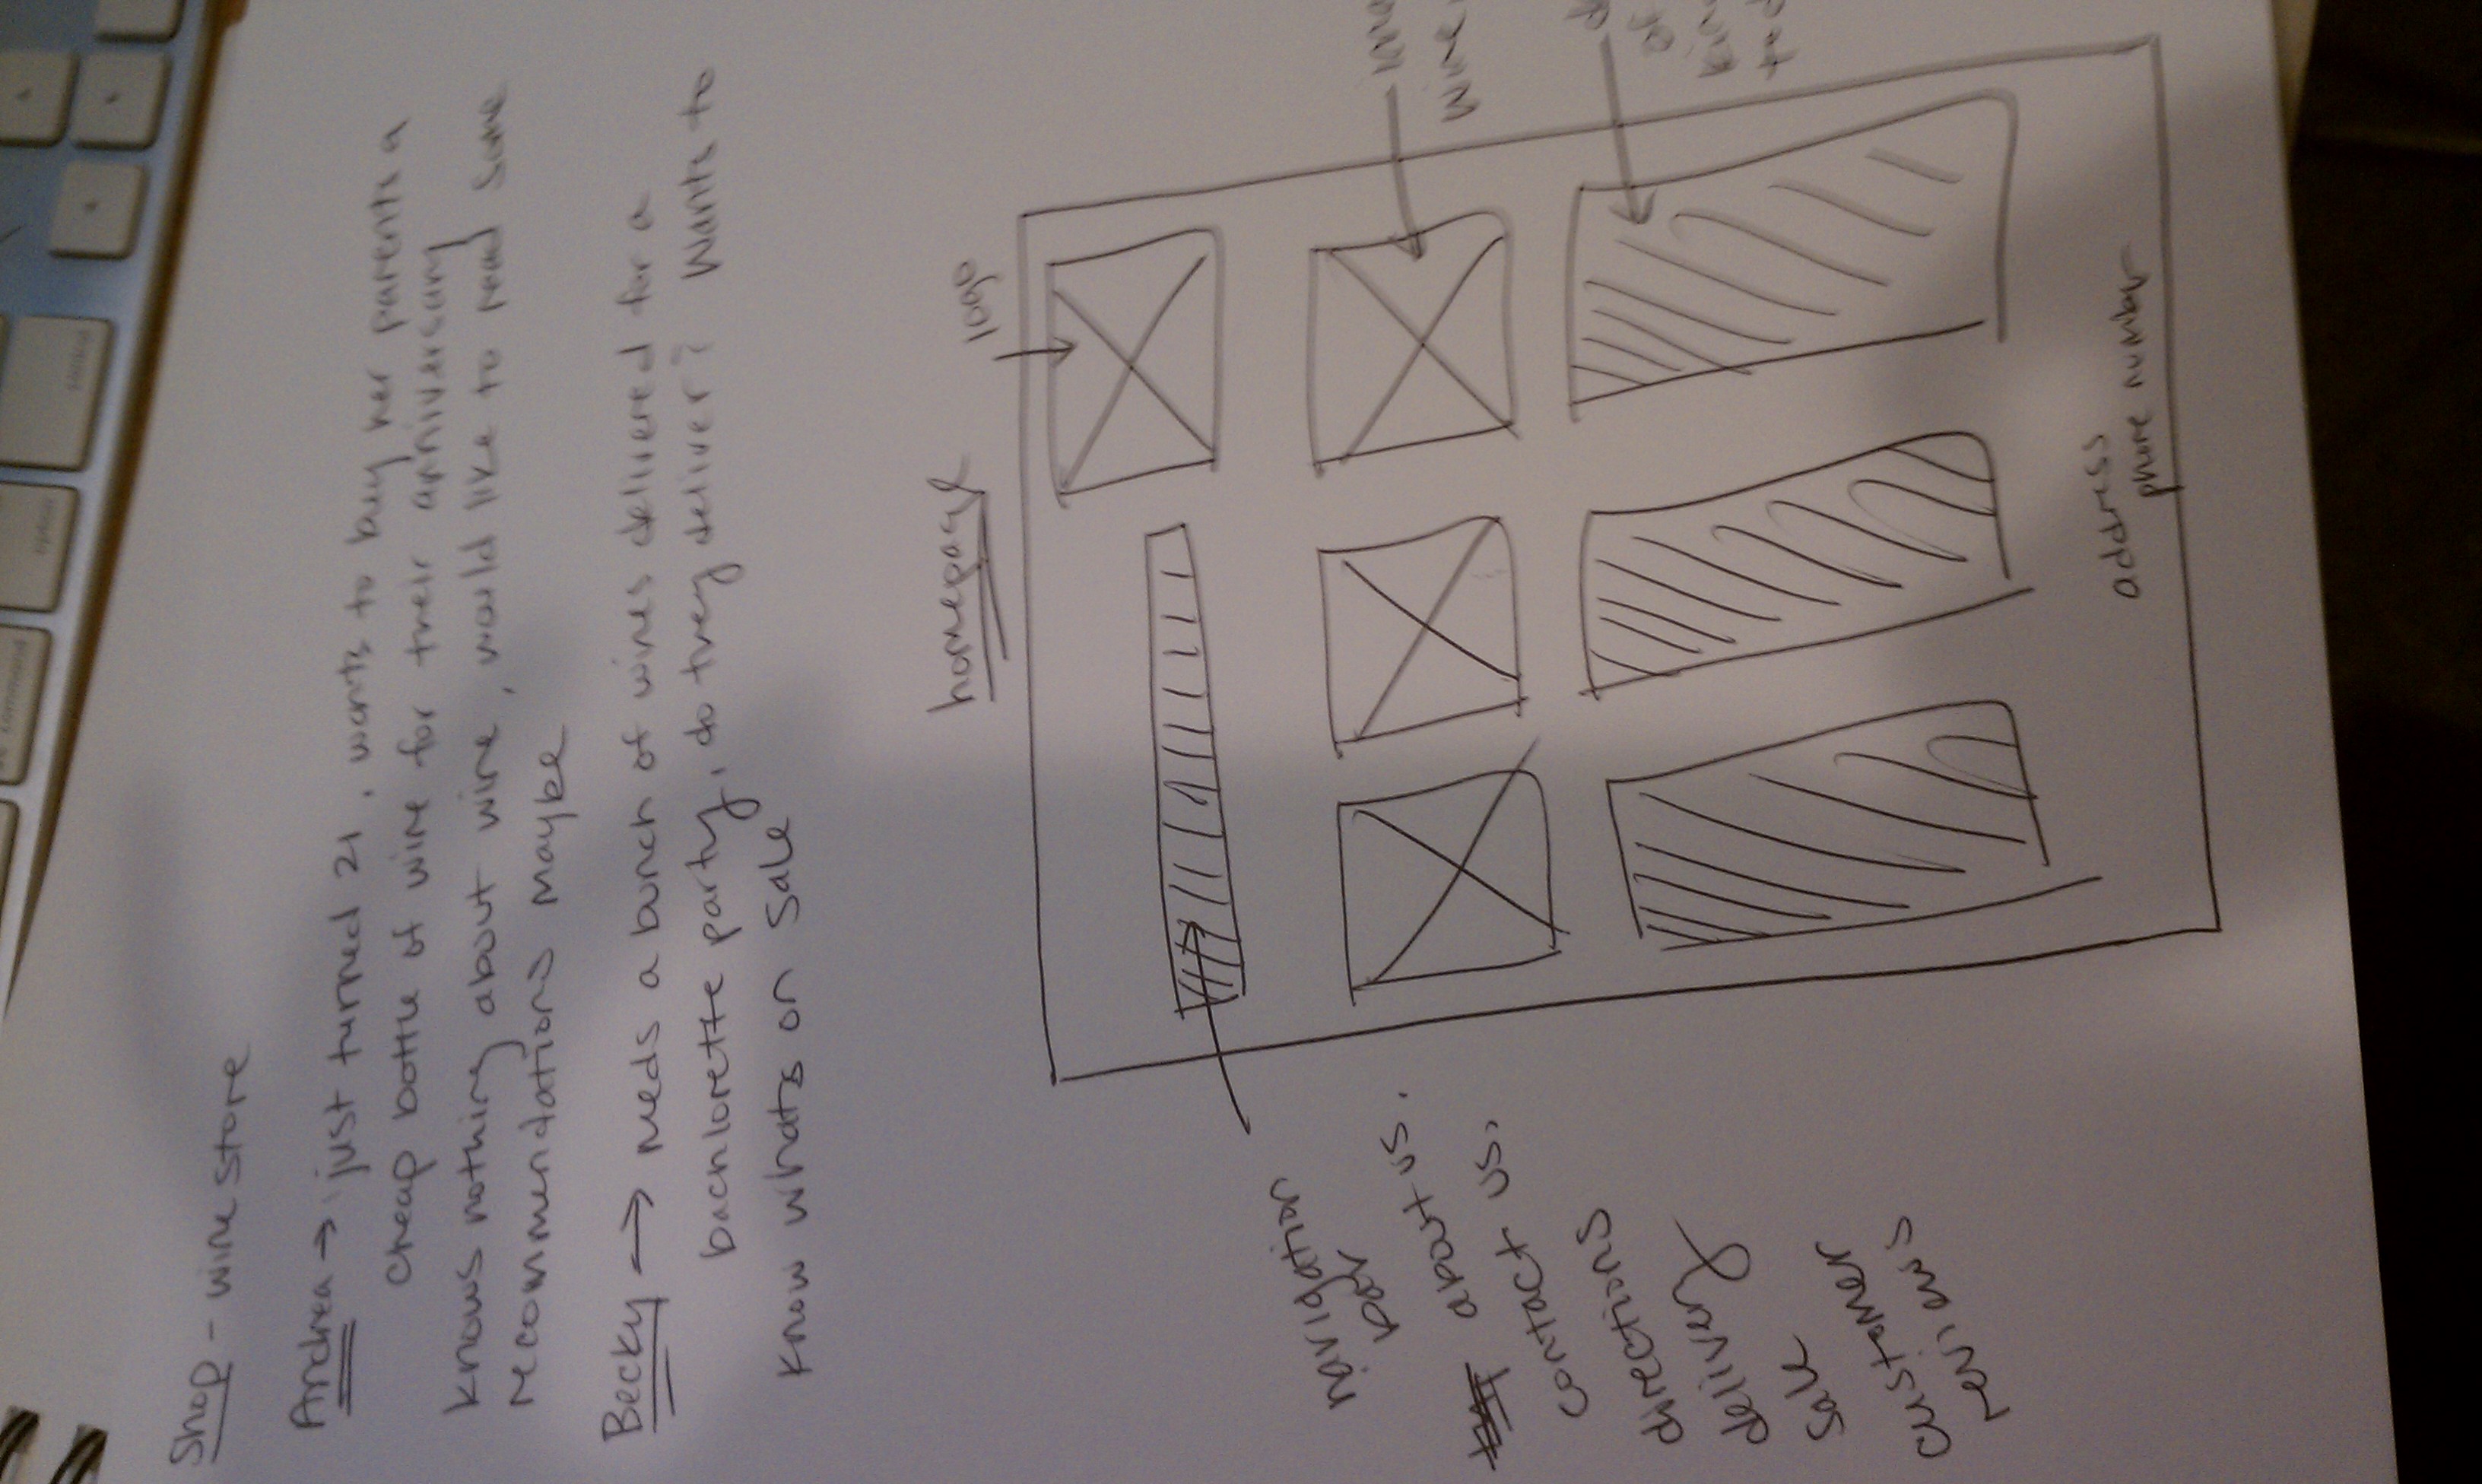 Shop - wine store
Andrea → just turned 21, wants to buy her parents a
cheap bottle of wine for their anniversary
knows nothing about wine, would like to read some
recommendations maybe
Becky → needs a bunch of wines delivered for a
bachlorette party, do they deliver? Wants to
know whats on sale
homepage
logo
navigation
bar
about us.
contact us.
directions
delivery
sale
customer
reviews
wine
of
address
phone number